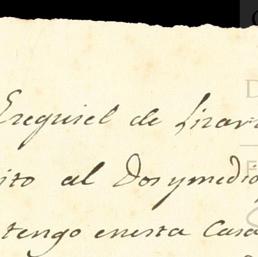 Ezequiel de Lizarr
ito al Dos y medio
tengo en esta Casa